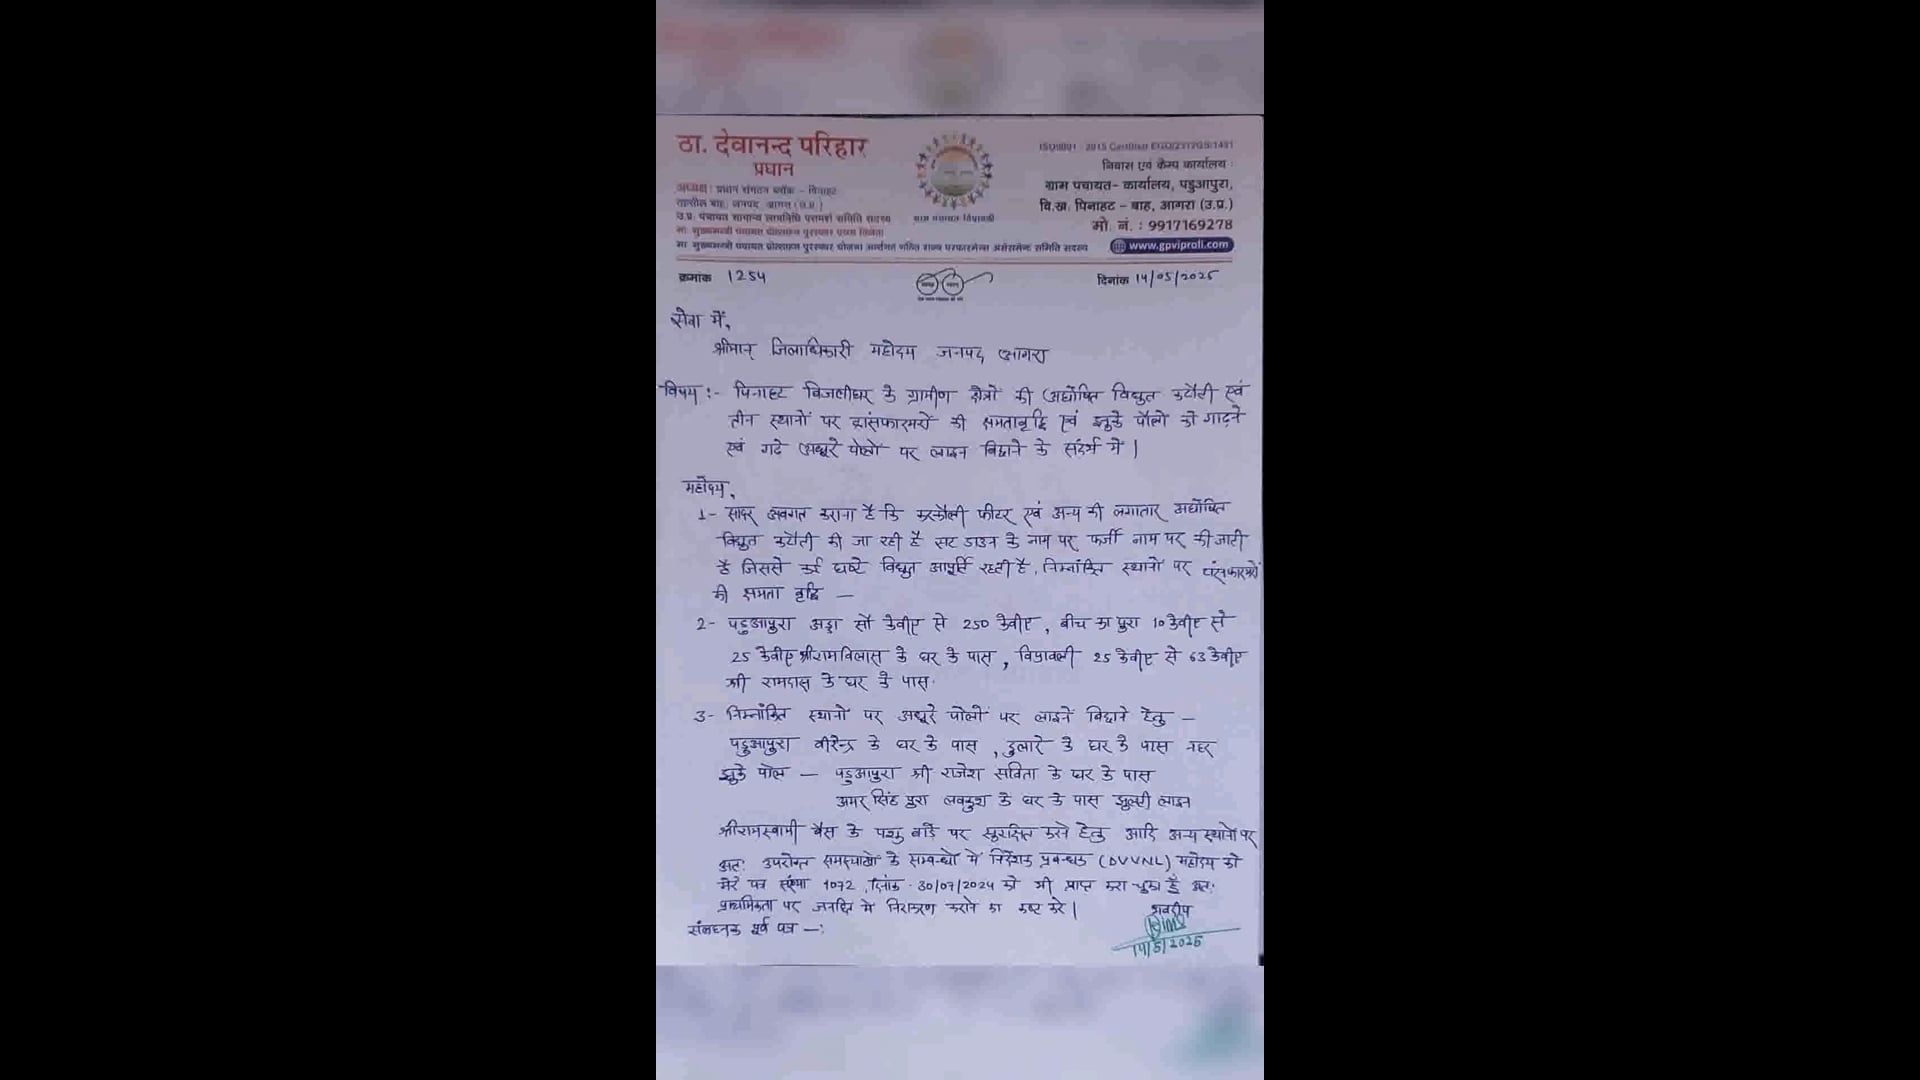 ठा. देवानन्द परिहार
प्रधान
अध्यक्ष : प्रधान संगठन ब्लॉक - पिनाहट
तहसील बाह, जनपद आगरा (उ.प्र.)
उ.प्र. पंचायत सामान्य लाभनिधि परामर्श समिति सदस्य
मा. मुख्यमन्त्री पंचायत प्रोत्साहन पुरस्कार प्रथम विजेता
मा. मुख्यमन्त्री पंचायत प्रोत्साहन पुरस्कार योजना अन्तर्गत गठित राज्य परफारमेन्स असेसमेन्ट समिति सदस्य
ग्राम पंचायत विप्रावली
ISO9001 : 2015 Certified
निवास एवं कैम्प कार्यालय :
ग्राम पंचायत- कार्यालय, पडुआपुरा,
वि.ख. पिनाहट - बाह, आगरा (उ.प्र.)
मो. नं. : 9917169278
www.gpviproli.com
क्रमांक 1254
दिनांक 14/05/2025
सेवा में,
श्रीमान् जिलाधिकारी महोदय जनपद आगरा
विषय :- पिनाहट बिजलीघर के ग्रामीण क्षेत्रों की अघोषित विद्युत कटौती एवं
तीन स्थानों पर ट्रांसफारमरों की क्षमतावृद्धि एवं झुके पोलों को गाढ़ने
एवं गढे अधूरे पोलों पर लाइन बिछाने के संदर्भ में |
महोदय,
1- सादर अवगत कराना है कि करकौली फीटर एवं अन्य की लगातार अघोषित
विद्युत कटौती की जा रही है सट डाउन के नाम पर फर्जी नाम पर की जाती
है जिससे कई घण्टे विद्युत आपूर्ति रहती है, निम्नांकित स्थानों पर
की क्षमता वृद्धि —
2- पडुआपुरा अड्डा सौ केवीए से 250 केवीए, बीच का पुरा 10 केवीए से
25 केवीए श्रीरामविलास के घर के पास, विप्रावली 25 केवीए से 63 केवीए
श्री रामदास के घर के पास.
3- निम्नांकित स्थानों पर अधूरे पोलों पर लाइनें बिछाने हेतु —
पडुआपुरा वीरेन्द्र के घर के पास, दुलारे के घर के पास नहर
झुके पोल — पडुआपुरा श्री राजेश सविता के घर के पास
अमर सिंह पुरा लवकुश के घर के पास झुलती लाइन
श्रीरामस्वामी बैस के पशु बाडे पर सुरक्षित करने हेतु आदि अन्य स्थानों पर
अतः उपरोक्त समस्याओं के सम्बन्धो में निर्देशक प्रबन्धक (DVVNL) महोदय को
मेरे पत्र संख्या 1072, दिनांक 30/07/2024 को भी प्राप्त करा चुका हूँ अतः
प्राथमिकता पर जनहित में निराकरण कराने का कष्ट करे |
संलग्नक पूर्व पत्र —:
भवदीप
14/5/2025